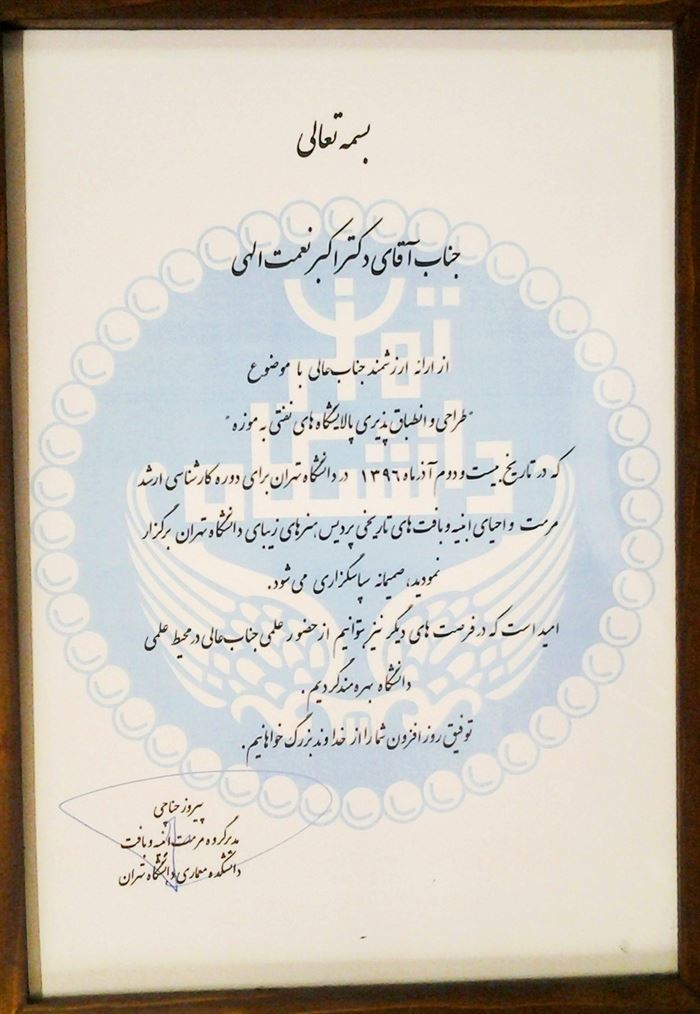 بسمه تعالی
جناب آقای دکتر اکبر نعمت الهی
از ارائه ارزشمند جناب عالی با موضوع
"طراحی و انطباق پذیری پالایشگاه های نفتی به موزه"
که در تاریخ بیست و دوم آذرماه ۱۳۹۶ در دانشگاه تهران برای دوره کارشناسی ارشد
مرمت و احیای ابنیه و بافت های تاریخی پردیس هنرهای زیبای دانشگاه تهران برگزار
نمودید، صمیمانه سپاسگزاری می شود.
امید است که در فرصت های دیگر نیز بتوانیم از حضور علمی جناب عالی در محیط علمی
دانشگاه بهره مند گردیم.
توفیق روزافزون شما را از خداوند بزرگ خواهانیم.
پیروز حناچی
مدیر گروه مرمت ابنیه و بافت
دانشکده معماری دانشگاه تهران
دانشگاه تهران